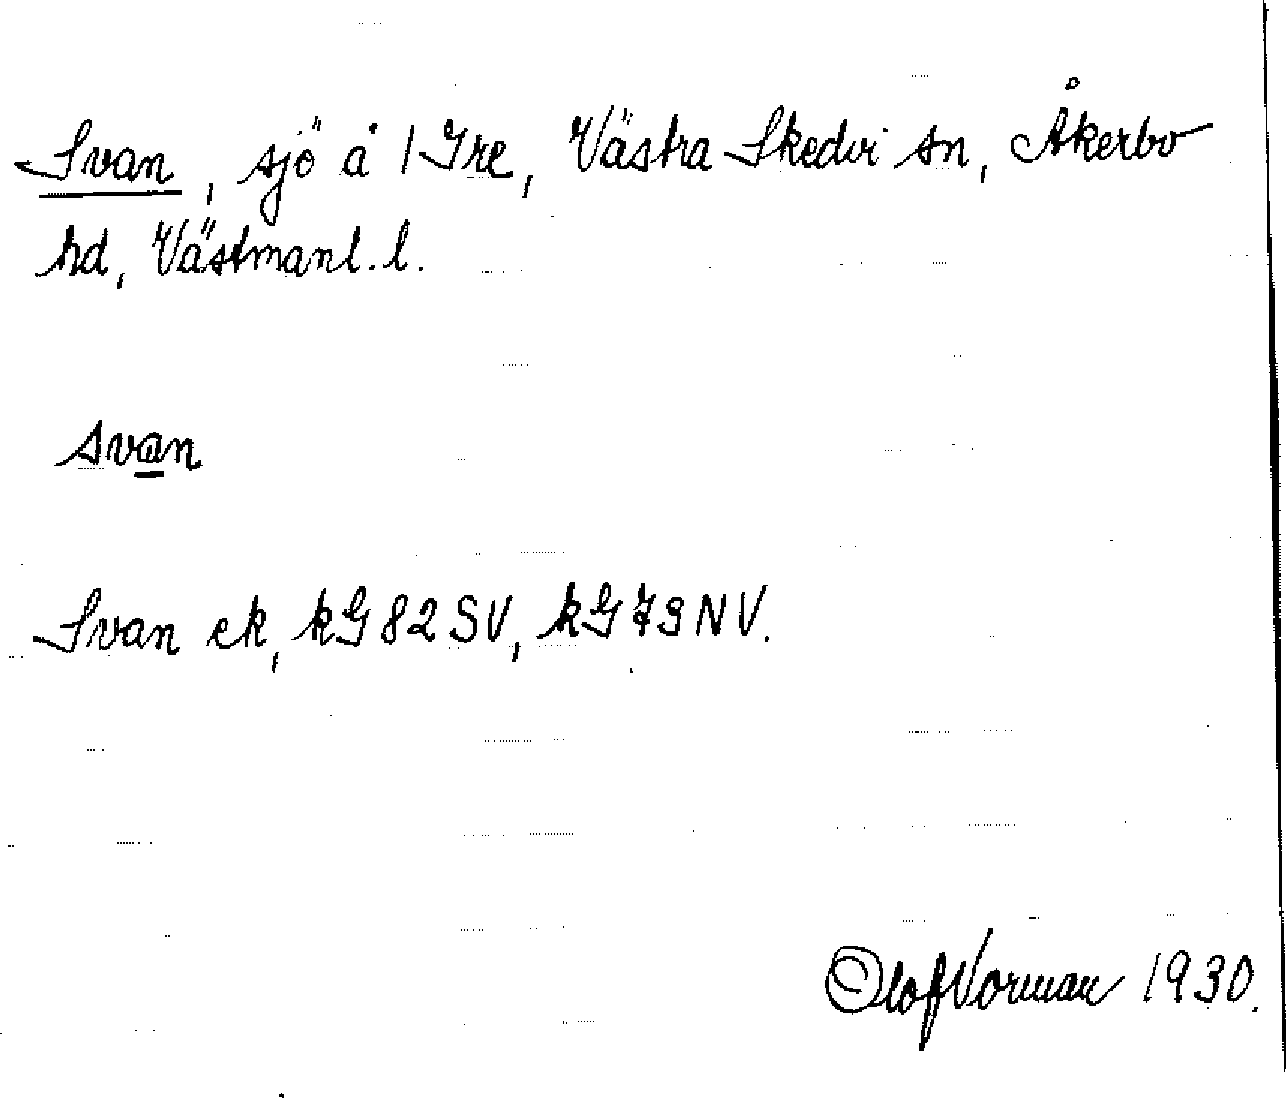 Svan, sjö å 1 Gre, Västra Skedvi sn, Åkerbo
hd, Västmanl. l.
svan
Svan ek, kG 82 SV, kG 79 NV.
Olof Norman 1930.